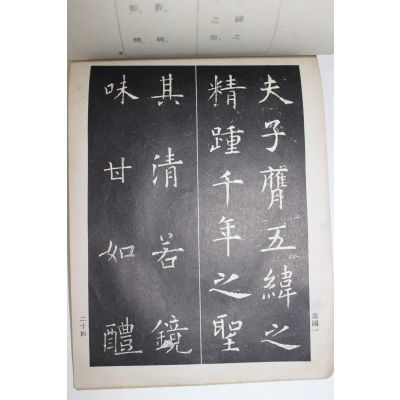 夫子膺五緯之
精踵千年之聖
其清若鏡
味甘如醴
二十四